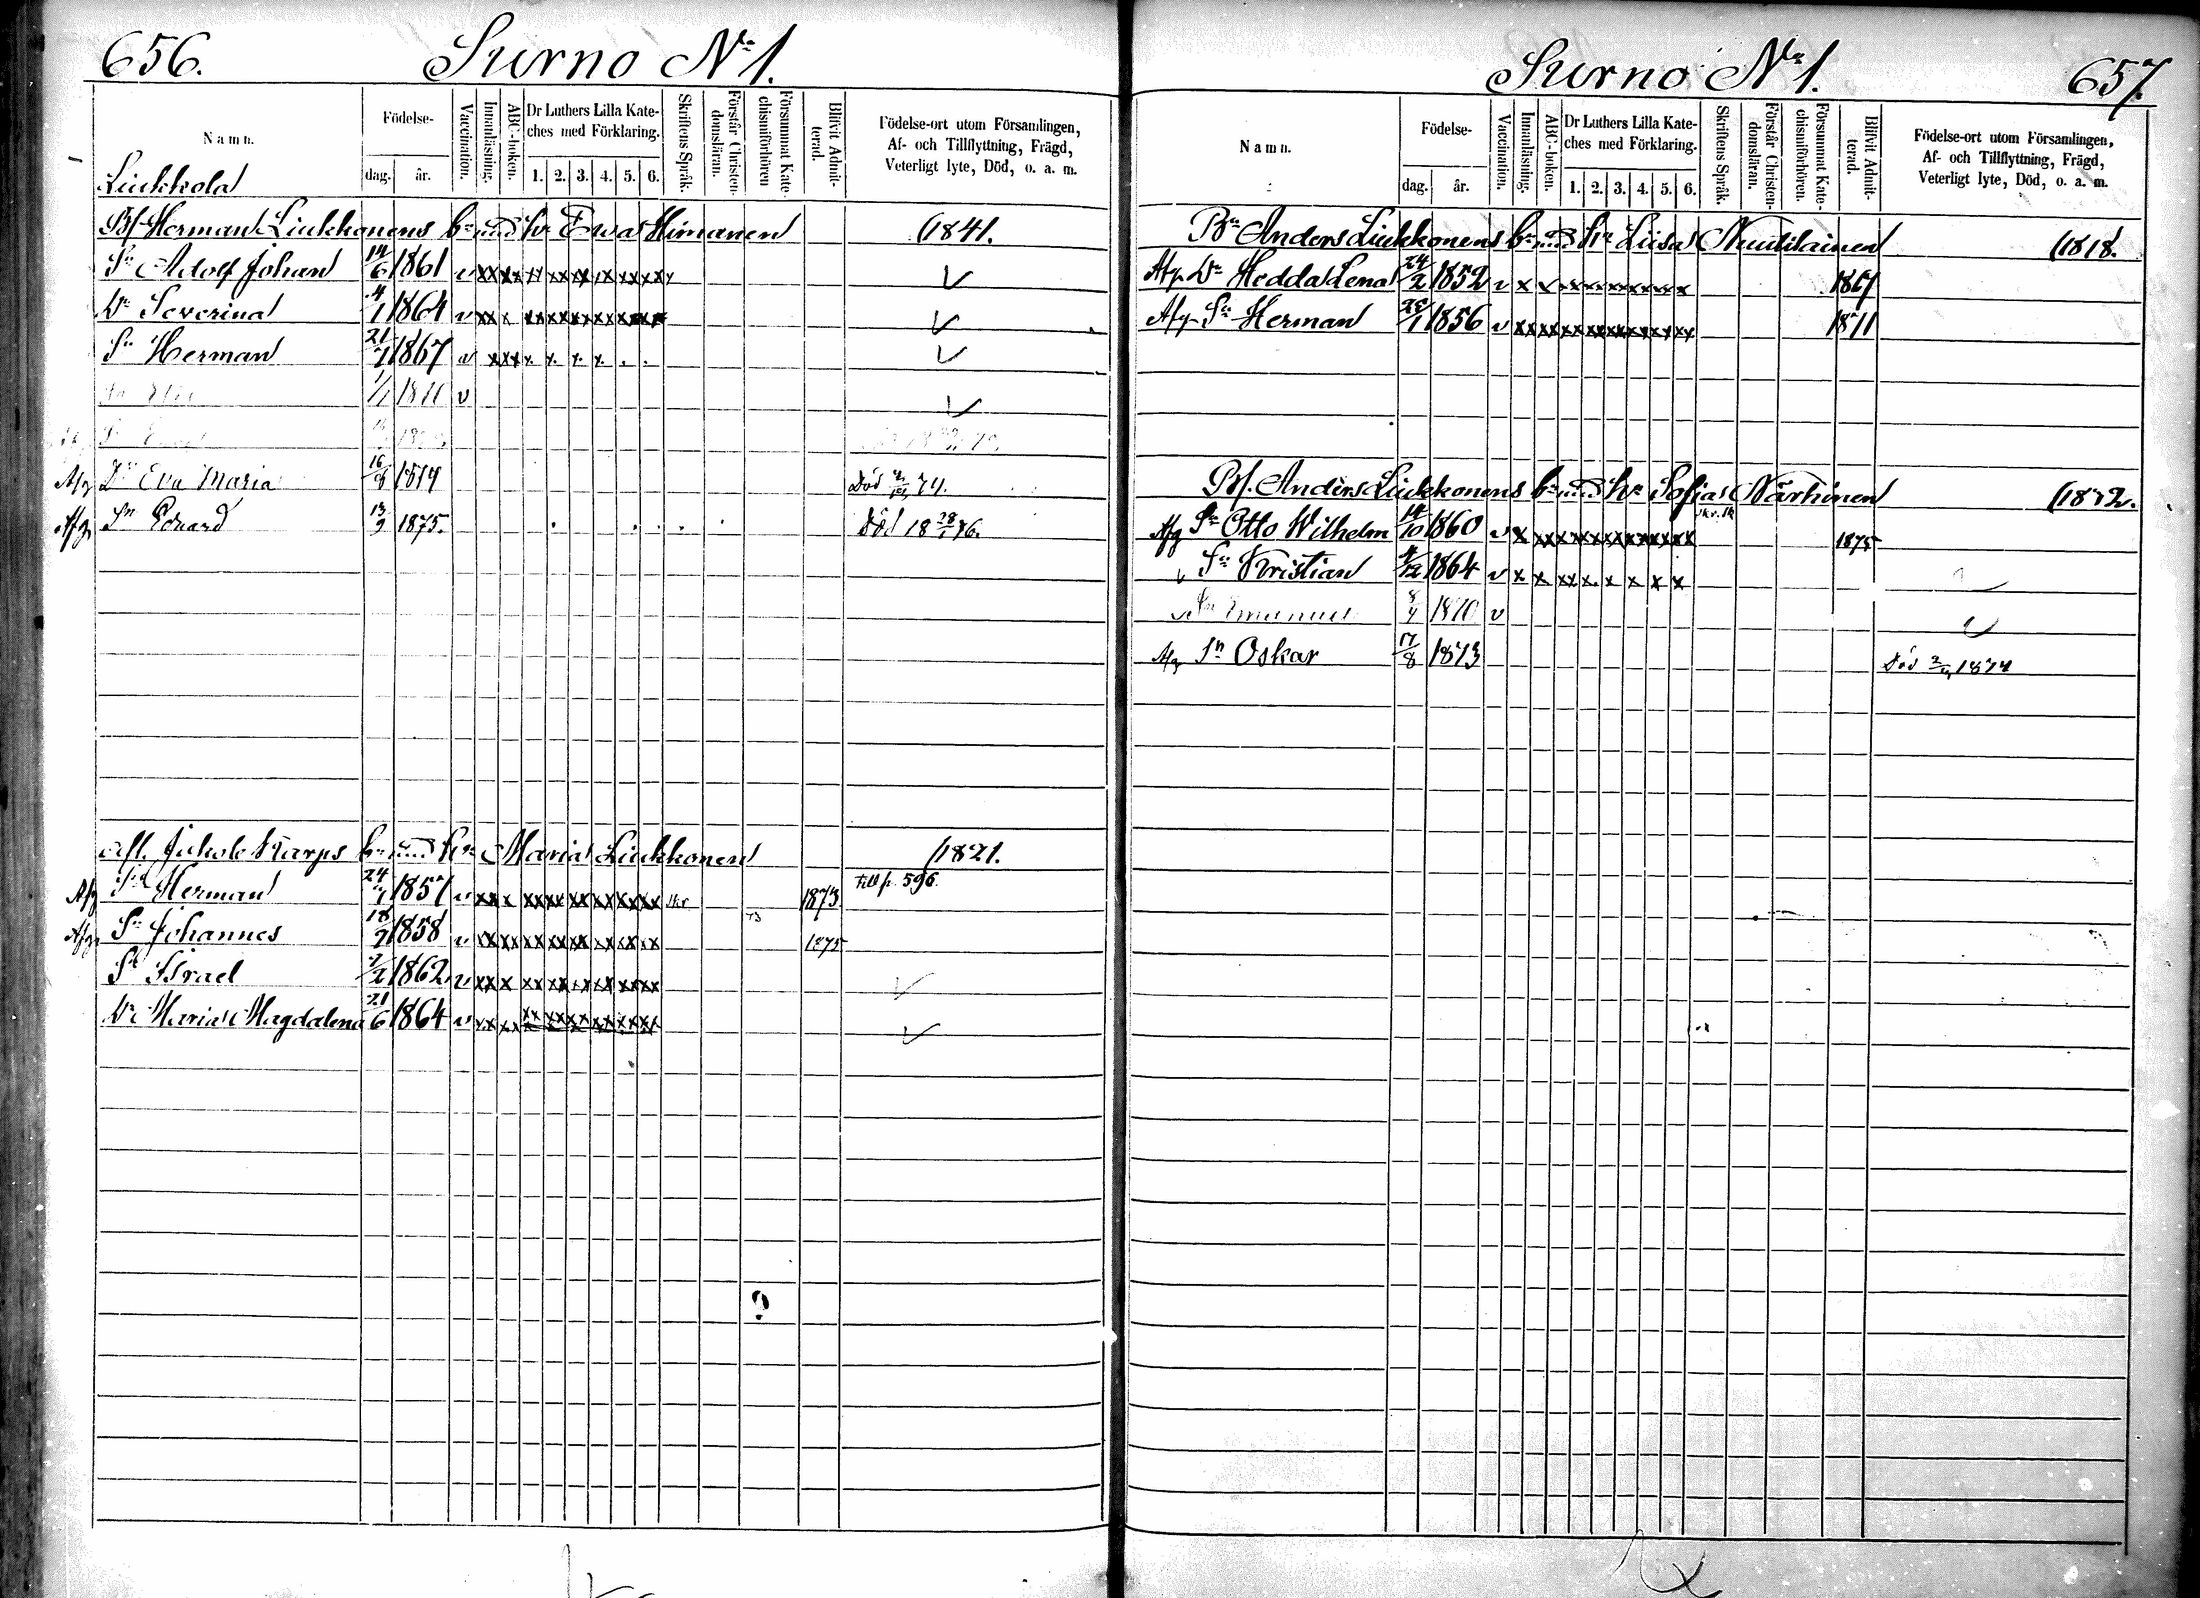 656. Surno No 1.
Namn.
Födelse-
dag. år.
Vaccination.
Innanläsning.
ABC-boken.
Dr Luthers Lilla Kate-
ches med Förklaring.
1. 2. 3. 4. 5. 6.
Skriftens Språk.
Förstår Christen-
domsläran.
Försummat Kate-
chismiförhören
Blifvit Admit-
terad.
Födelse-ort utom Församlingen,
Af- och Tillflyttning, Frägd,
Veterligt lyte, Död, o. a. m.
Liukkola
Bf Herman Liukkonens bn med hu Ewa Himanen (1841.
Sn Adolf Johan 14/6 1861 v
Dr Severina 4/1 1864 v
Sn Herman 21/7 1867 v
v
Afg Dr Eva Maria 16/8 1874 Död 74.
Afg Sn Eduard 13/9 1875. Död 18 28/1 76.
Jakob Karps bn med hu Maria Liukkonen (1821.
Afg Sn Herman 24/7 1857 v 1873 till p. 596.
Afg Sn Johannes 18/7 1858 v 73 1875
Sn Israel 7/2 1862 v
Dr Maria Magdalena 21/6 1864 v
?
Surno No 1. 657.
Namn.
Födelse-
dag. år.
Vaccination.
Innanläsning.
ABC-boken.
Dr Luthers Lilla Kate-
ches med Förklaring.
1. 2. 3. 4. 5. 6.
Skriftens Språk.
Förstår Christen-
domsläran.
Försummat Kate-
chismiförhören.
Blifvit Admit-
terad.
Födelse-ort utom Församlingen,
Af- och Tillflyttning, Frägd,
Veterligt lyte, Död, o. a. m.
Bn Anders Liukkonens bn med hu Liisa Nuutilainen (1818.
Afg Dr Hedda Lena 24/2 1852 v 1867
Afg Sn Herman 25/1 1856 v 1871
Bf. Anders Liukkonens bn med hu Sofia Närhinen (1832.
Afg Sn Otto Wilhelm 14/10 1860 v 1875
Sn Kristian 4/12 1864 v
Sn Emanuel 8/4 1870 v
Afg Sn Oskar 17/8 1873 Död 1874